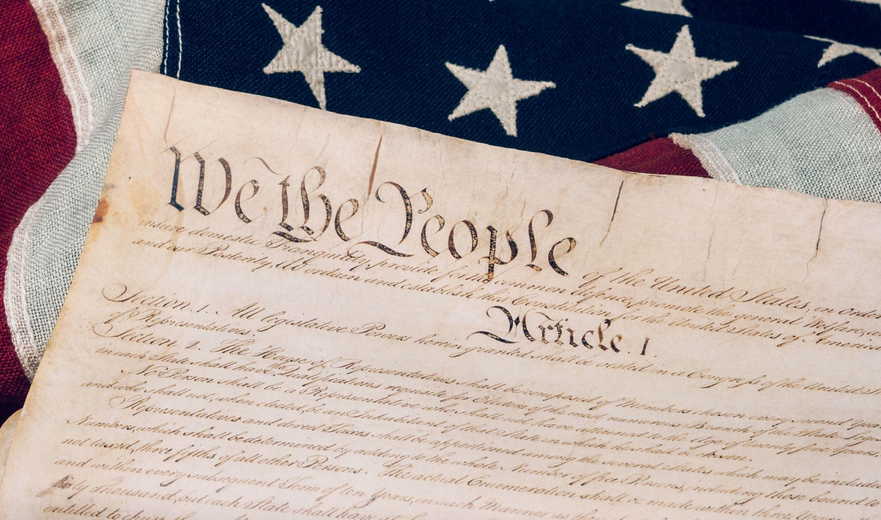 We the People of the United States, in Order
insure domestic Tranquility, provide for the common defence, promote the general Welfare,
and our Posterity, do ordain and establish this Constitution for the United States of America
Article. I.
Section. 1. All legislative Powers herein granted shall be vested in a Congress of the United
of Representatives.
Section. 2. The House of Representatives shall be composed of Members chosen every second Year
in each State shall have the Qualifications requisite for Electors of the most numerous Branch of the State
No Person shall be a Representative who shall not have attained to the Age of twenty five Years,
and who shall not, when elected, be an Inhabitant of that State in which he shall be chosen.
Representatives and direct Taxes shall be apportioned among the several States which may be included
Numbers, which shall be determined by adding to the whole Number of free Persons, including those bound to
not taxed, three fifths of all other Persons. The actual Enumeration shall be made within three Years
and within every subsequent Term of ten Years, in such Manner as
thirty Thousand, but each State shall have at
entitled to chuse